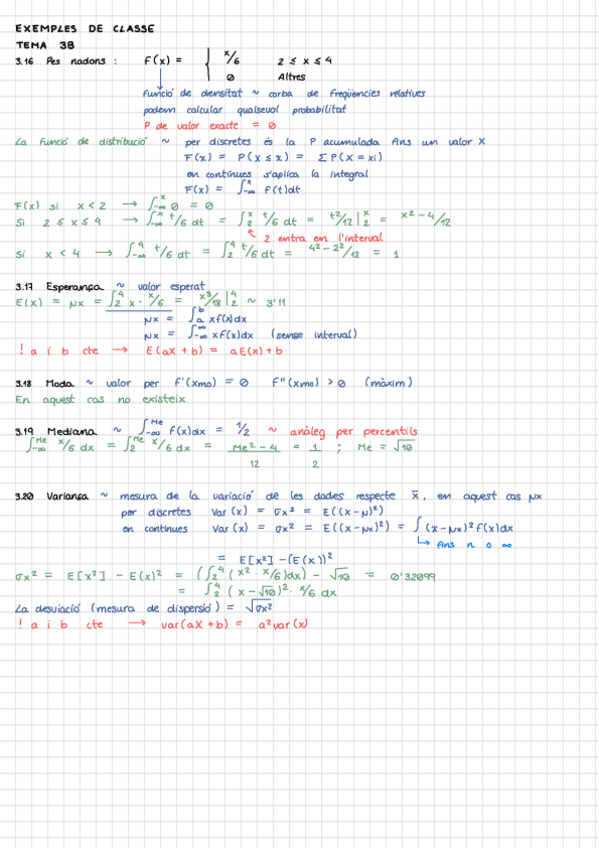 EXEMPLES DE CLASSE
TEMA 3B
3.16 Pes nadons : f(x) = { x/6 2 ≤ x ≤ 4
0 Altres
Funció de densitat ~ corba de freqüències relatives
podem calcular qualsevol probabilitat
P de valor exacte = 0
La funció de distribució ~ per discretes és la P acumulada fins un valor X
F(x) = P(X ≤ x) = ΣP(X = xi)
en contínues s'aplica la integral
F(x) = ∫-∞^x f(t)dt
F(x) si x < 2 → ∫-∞^x 0 = 0
Si 2 ≤ x ≤ 4 → ∫-∞^x t/6 dt = ∫2^x t/6 dt = t²/12 |2^x = x²-4/12
2 entra en l'interval
Si x < 4 → ∫-∞^4 t/6 dt = ∫2^4 t/6 dt = 4²-2²/12 = 1
3.17 Esperança ~ valor esperat
E(x) = μx = ∫2^4 x · x/6 = x³/18 |2^4 ~ 3'11
μx = ∫a^b x f(x)dx
μx = ∫-∞^∞ x f(x)dx (sense interval)
! a i b cte → E(aX + b) = aE(x) + b
3.18 Moda ~ valor per f'(xmo) = 0 f''(xmo) > 0 (màxim)
En aquest cas no existeix
3.19 Mediana ~ ∫-∞^Me f(x)dx = 1/2 ~ anàleg per percentils
∫-∞^Me x/6 dx = ∫2^Me x/6 dx = Me²-4/12 = 1/2 ; Me = √10
3.20 Variança ~ mesura de la variació de les dades respecte x̄, en aquest cas μx
per discretes Var(x) = σx² = E((x-μ)²)
en contínues Var(x) = σx² = E((x-μx)²) = ∫(x-μx)² f(x)dx
↳ fins n o ∞
= E[x²] - (E(x))²
σx² = E[x²] - E(x)² = (∫2^4 (x² · x/6)dx) - √10 = 0'32099
= ∫2^4 (x-√10)² · x/6 dx
La desviació (mesura de dispersió) = √σx²
! a i b cte → var(aX + b) = a² var(x)